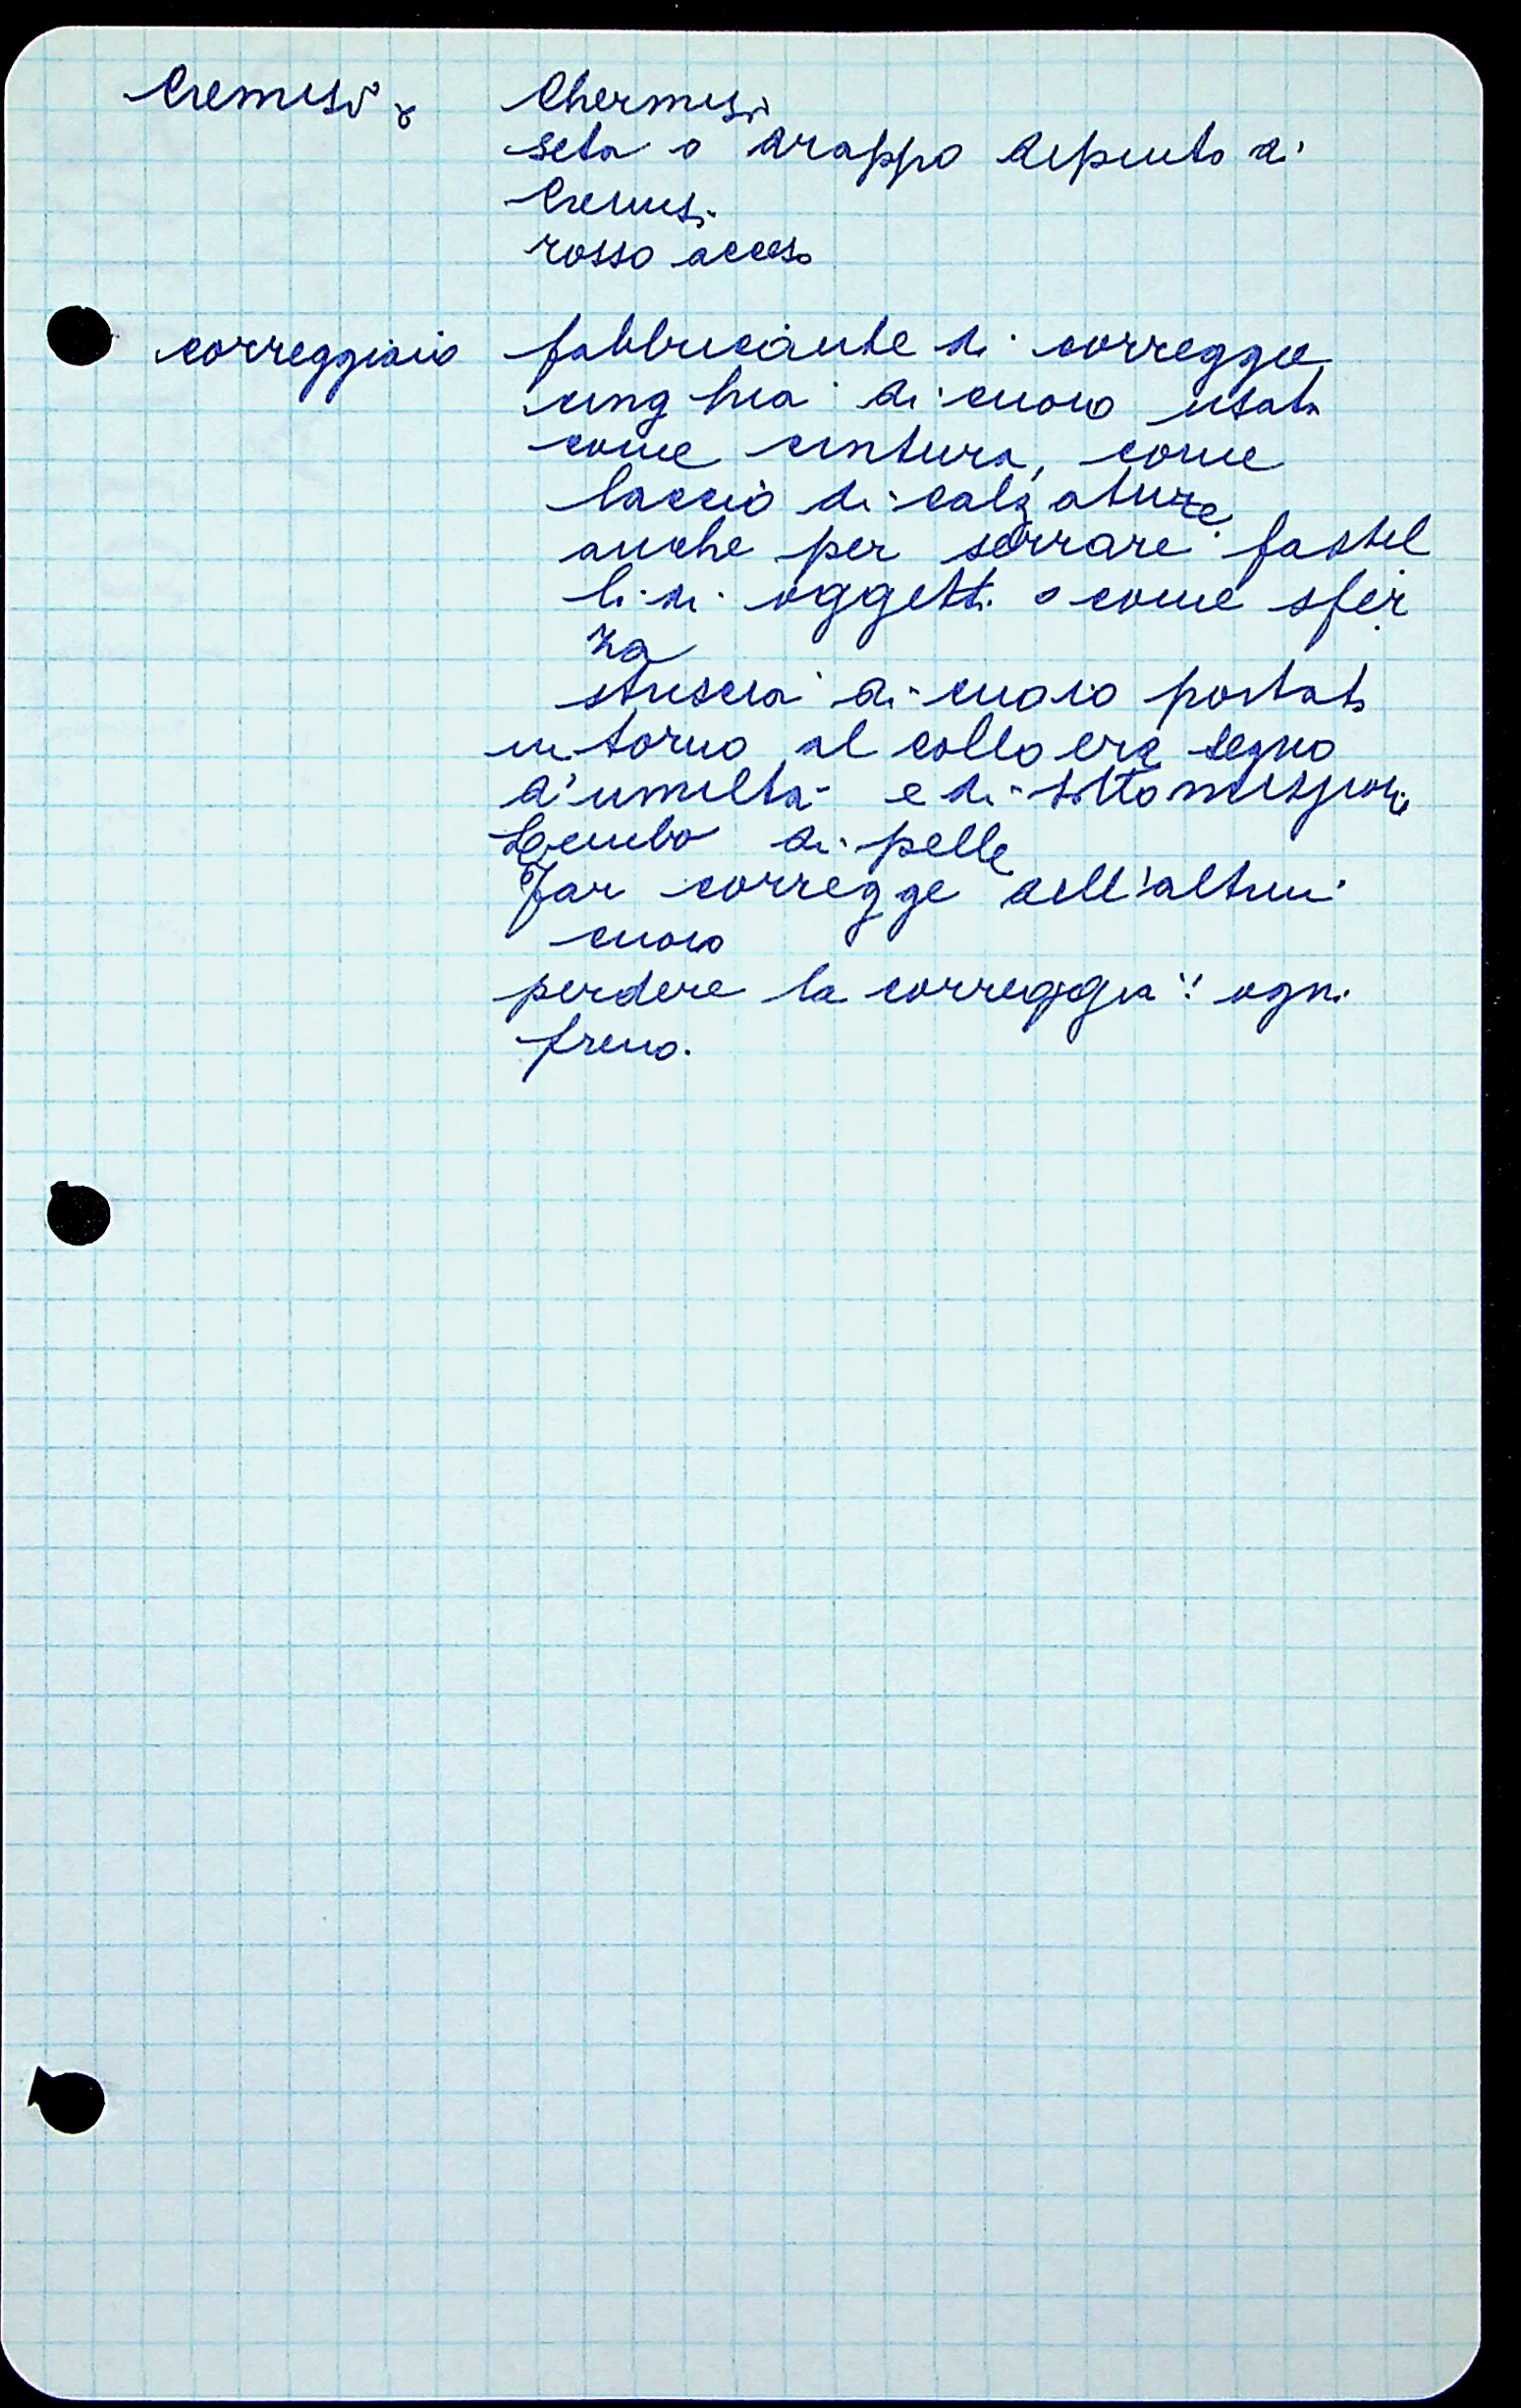 Cremisi
Chermisi
seta o drappo dipinto di
Cremisi
rosso acceso
correggiaio
fabbricante di corregge
cinghia di cuoio usata
come cintura, come
laccio di calzature
anche per serrare fastel
li di oggetti o come sfer
za
striscia di cuoio portata
intorno al collo era segno
d'umiltà e di sottomissione
Lembo di pelle
Far corregge dell'altrui
cuoio
perdere la correggia: ogni
freno.